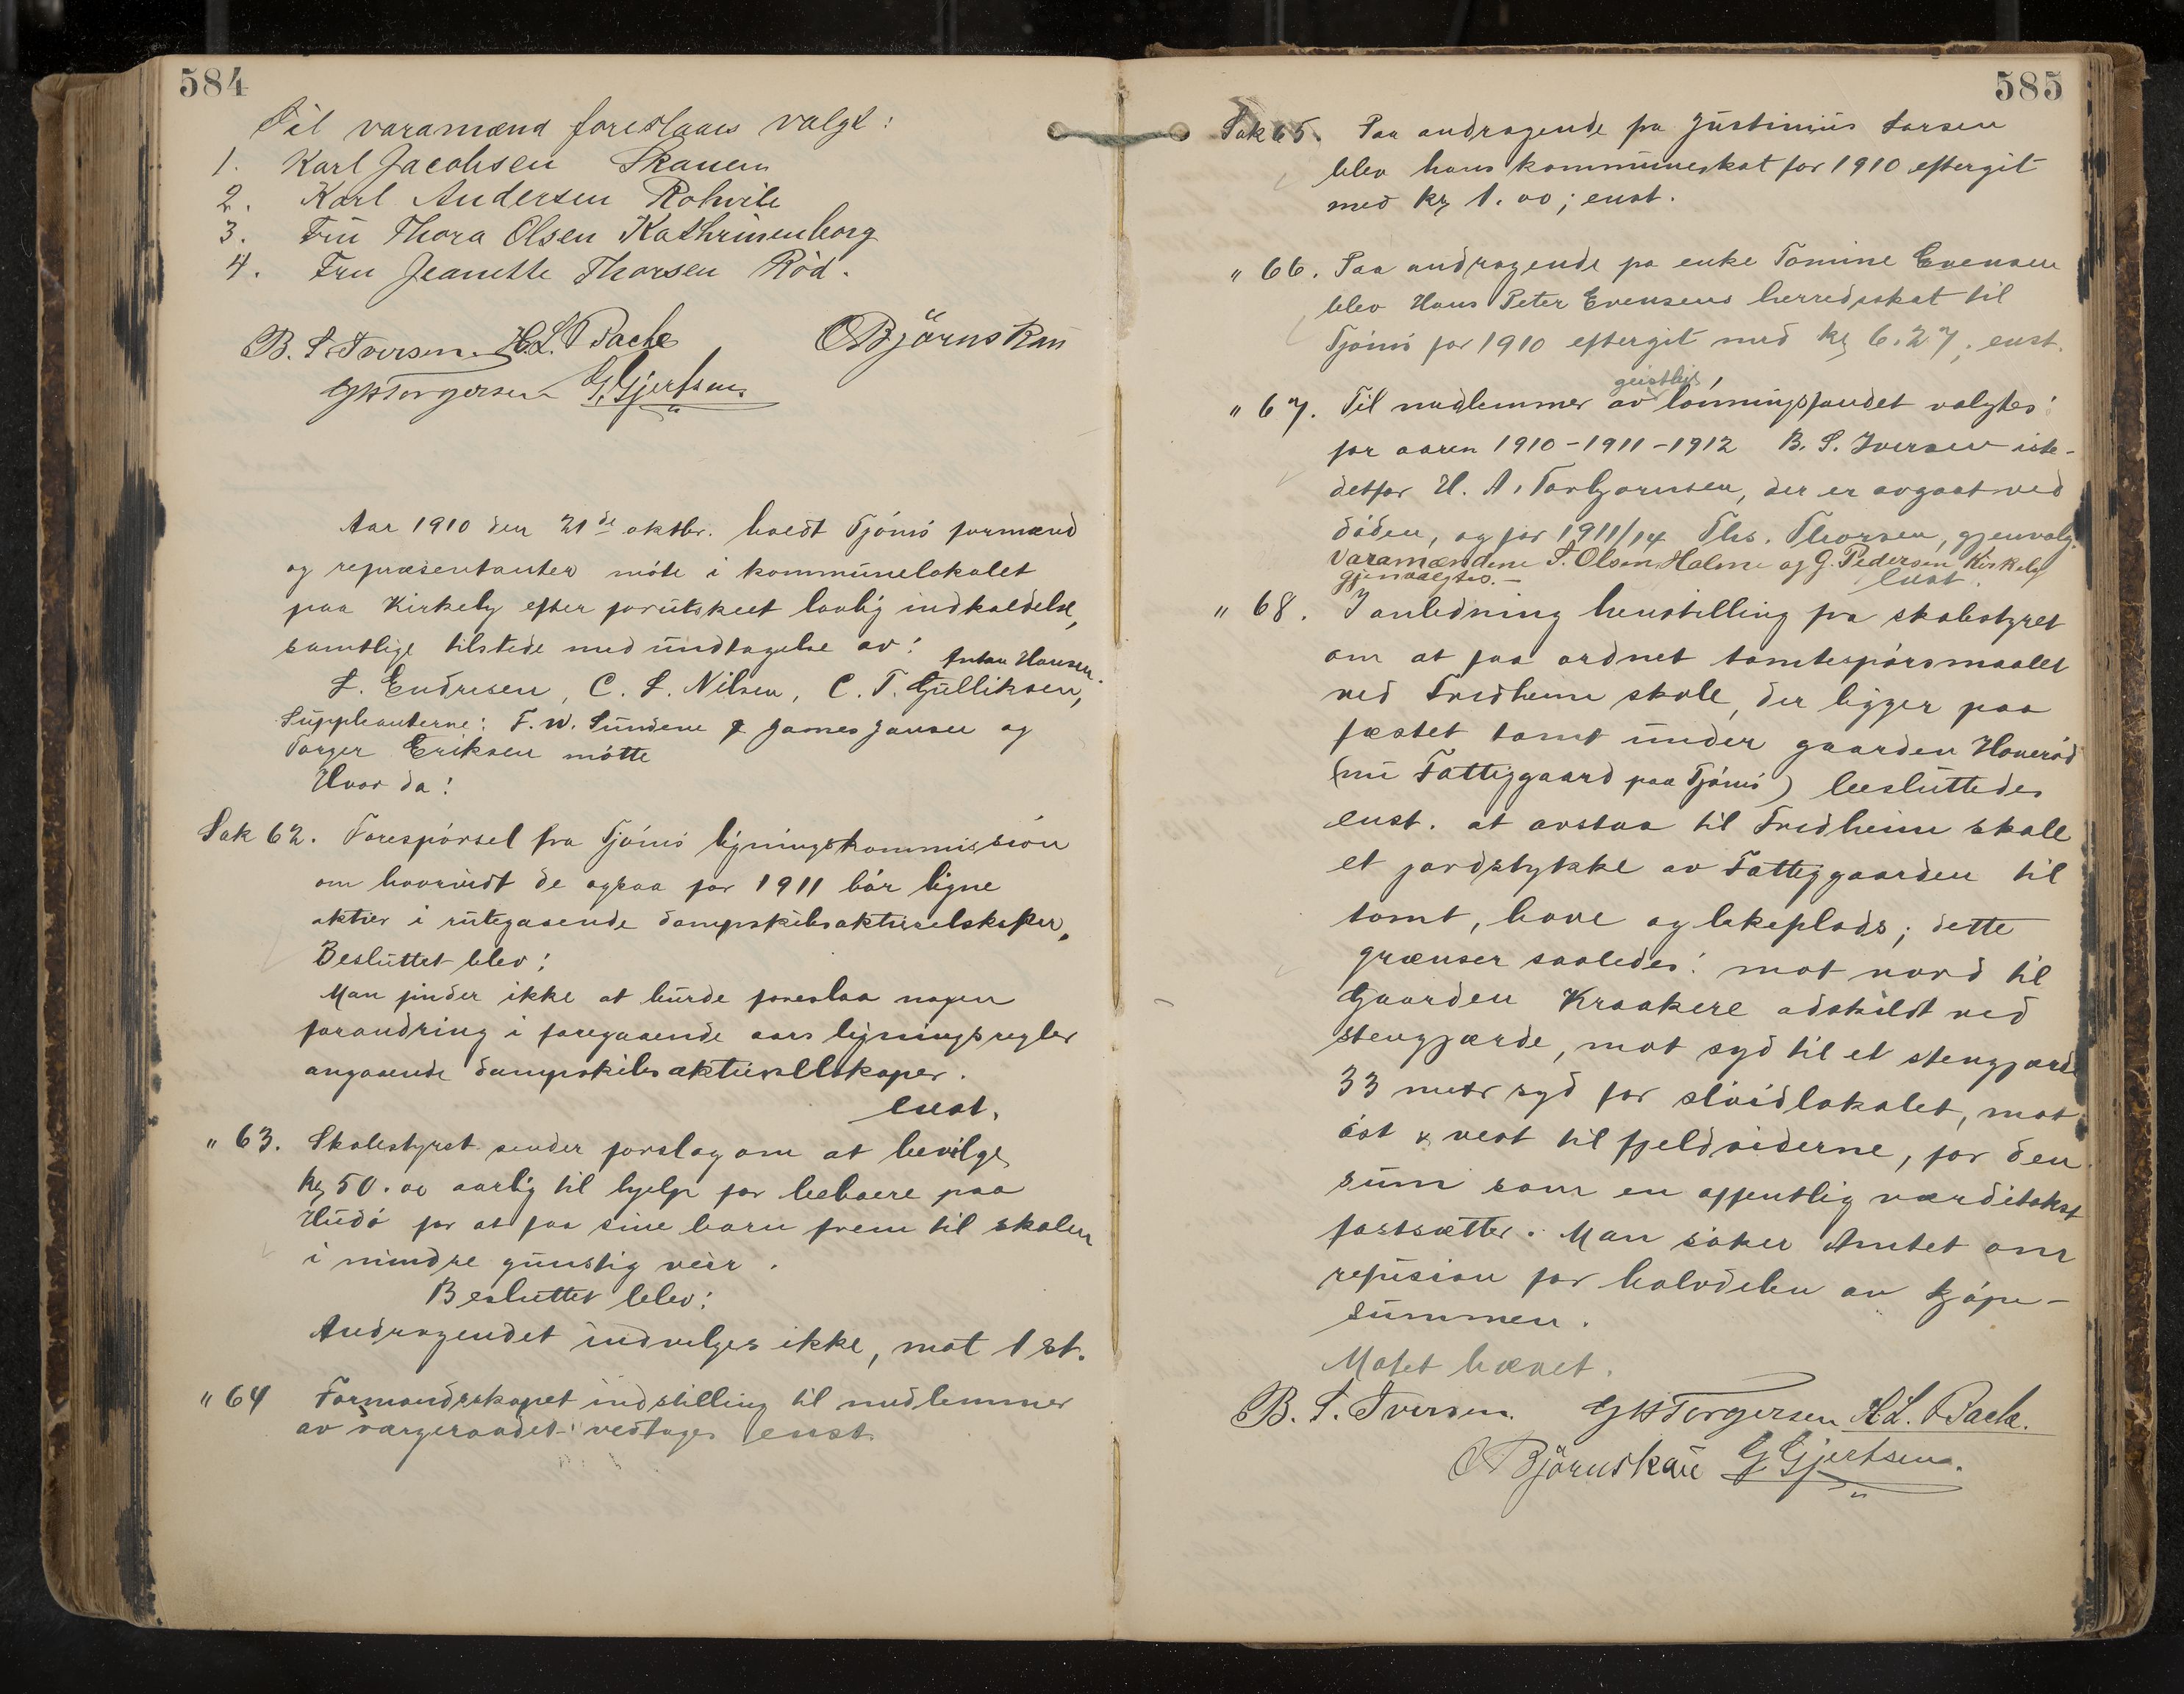 584
Til varamænd foreslaaes valgt:
1. Karl Jacobsen Skauen
2. Karl Andersen Rolvik
3. Fru Thora Olsen Kathrinenborg
4. Fru Jeanette Thorsen Röd.
B. S. Iversen. H. L. Bache OBjörnskau
GHTorgersen G. Gjertsen
Aar 1910 den 21de oktbr. holdt Tjömö formænd
og repræsentanter möte i kommunelokalet
paa Kirkeby efter forutskeet lovlig indkaldelse,
samtlige tilstede med undtagelse av: Anton Hansen.
L. Endresen, C. L. Nilsen, C. T. Gulliksen,
Suppleanterne: F. W. Sundene James Jansen og
Torger Eriksen mötte
Hvor da:
Sak 62. Forespörsel fra Tjömö ligningskommission
om hvorvidt de ogsaa for 1911 bör ligne
aktier i rutegaaende dampskibsaktieselskaper,
Besluttet blev:
Man finder ikke at burde foreslaa nogen
forandring i foregaaende aars ligningsregler
angaaende dampskibsaktieselskaper.
enst.
" 63. Skolestyret sender forslag om at bevilge
kr 50.00 aarlig til hjelp for beboere paa
Hudö for at faa sine barn frem til skolen
i mindre gunstig veir.
Besluttet blev:
Andragendet indvilges ikke, mot 1 st.
" 64 Formandskapet indstilling til medlemmer
av værgeraadet vedtages enst.
585
Sak 65. Paa andragende fra Justinius Larsen
blev hans kommuneskat for 1910 eftergit
med kr 1.00; enst.
" 66. Paa andragende fra enke Tomine Evensen
blev Hans Peter Evensens herredsskat til
Tjömö for 1910 eftergit med kr 6.27; enst.
geistlig
" 67. Til medlemmer av lönningsfondet valgtes:
for aaren 1910-1911-1912 B. S. Iversen iste-
detfor H. A. Torbjornsen, der er avgaat ved
döden, og for 1911/14 Ths. Thorsen, gjenvalg.
Varamændene S. Olsen Holme og G. Pedersen Kirkeby
gjenvalgtes. - enst.
" 68. I anledning henstilling fra skolestyret
om at faa ordnet tomtespörsmaalet
ved Fredheim skole, der ligger paa
fæstet tomt under gaarden Haveröd
(nu Fattiggaard paa Tjömö) besluttedes
enst. at avstaa til Fredheim skole
et jordstykke av Fattiggaarden til
tomt, have og lekeplads; dette
grænser saaledes: mot nord til
Gaarden Kraakere adskildt ved
stengjærde, mot syd til et stengjærde
33 meter syd for slöidlokalet, mot
öst & vest til fjeldsiderne, for den
sum som en offentlig værditakst
fastsætter. Man söker Amtet om
refusion for halvdelen av kjöpe-
summen.
Mötet hævet.
B. S. Iversen. GHTorgersen H. L. Bache.
OBjörnskau G Gjertsen.